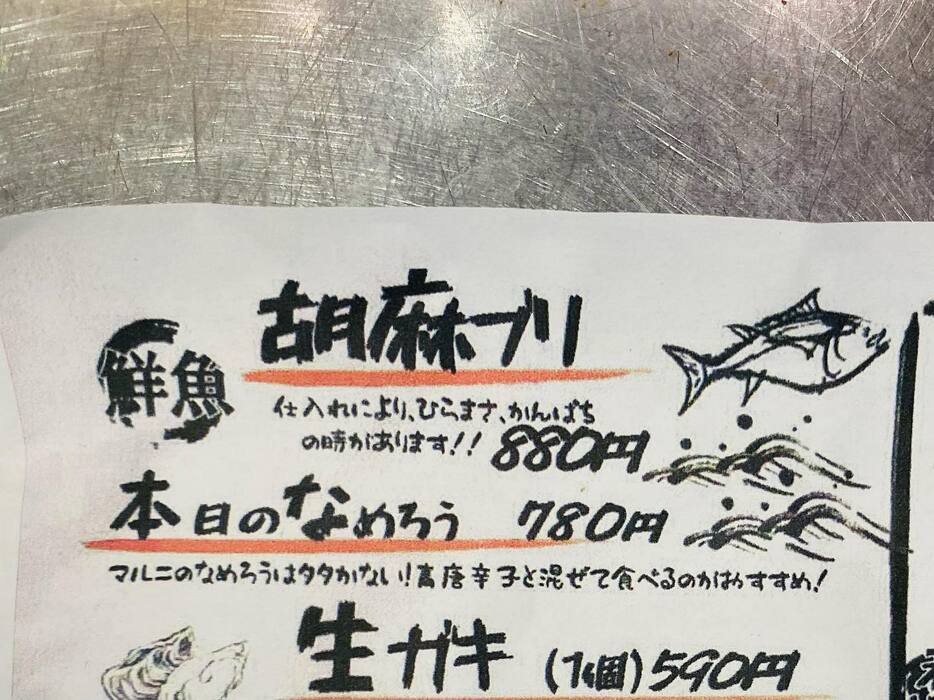 鮮魚
胡麻ブリ
仕入れにより、ひらまさ、かんぱち
の時があります!! 880円
本日のなめろう 780円
マルニのなめろうはタタかない!青唐辛子と混ぜて食べるのがおすすめ!
生ガキ (1個)590円